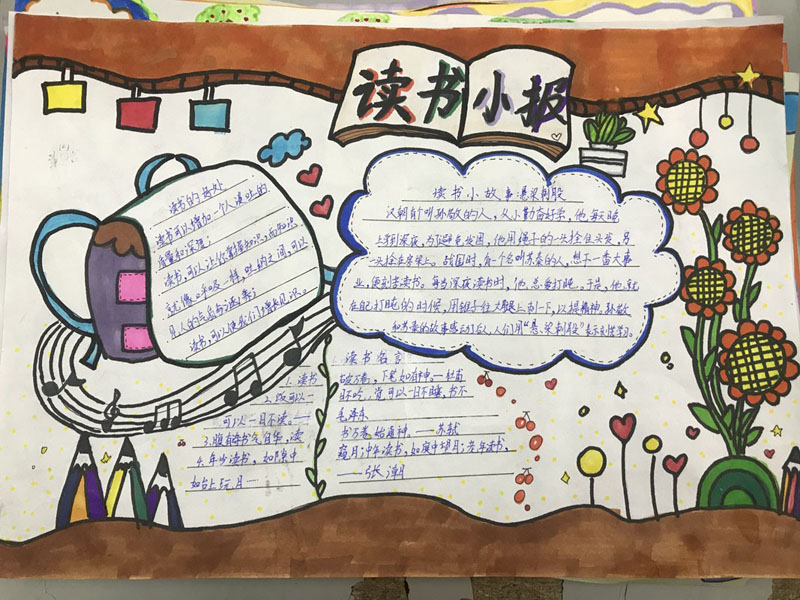 读书小报
读书的好处
读书可以增加一个人谈吐的
质量和深度；
读书，可以让你掌握知识，而知识
就像呼吸一样，吐纳之间，可以
见人的气质与涵养；
读书，可以使我们增长见识。
读书小故事悬梁刺股
汉朝有个叫孙敬的人，从小勤奋好学，他每天晚
上学到深夜，为了避免发困，他用绳子的一头拴住头发，另
一头拴在房梁上。战国时，有一个名叫苏秦的人，想干一番大事
业，便刻苦读书。每当深夜读书时，他总爱打盹。于是，他就
在自己打盹的时候，用锥子往大腿上刺一下，以提精神，孙敬
和苏秦的故事感动了后人，人们用“悬梁刺股”表示刻苦学习。
读书名言
1. 读书
破万卷，下笔如有神。——杜甫
2. 饭可以一
日不吃，觉可以一日不睡，书不
可以一日不读。——
毛泽东
3. 腹有诗书气自华，读
书万卷始通神。——苏轼
4. 年少读书，如隙中
窥月；中年读书，如庭中望月；老年读书，
如台上玩月——
——张潮